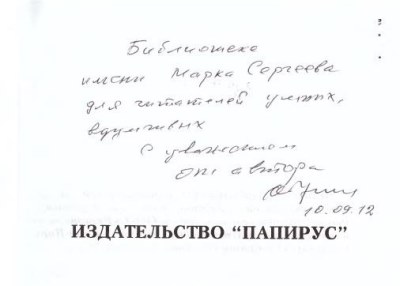 Библиотеке
имени Марка Сергеева
для читателей умных,
вдумчивых
С уважением
от автора
10.09.12
ИЗДАТЕЛЬСТВО “ПАПИРУС”